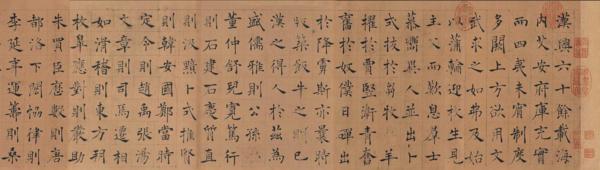 漢興六十餘載海
內乂安府庫充實
而四夷未賓制度
多闕上方欲用文
武求之如弗及始
以蒲輪迎枚生見
主父而歎息羣士
慕嚮異人並出卜
式拔於芻牧羊
擢於賈豎衛青奮
奮於奴僕日磾出
於降虜斯亦曩時
版築飯牛之已
漢之得人於茲為
盛儒雅則公孫
董仲舒兒寬篤行
則石建石慶質直
則汲黯卜式推賢
則韓安國鄭當時
定令則趙禹張湯
文章則司馬遷相
如滑稽則東方朔
枚皋應對則嚴助
朱買臣歷數則唐
都洛下閎協律則
李延年運籌則桑